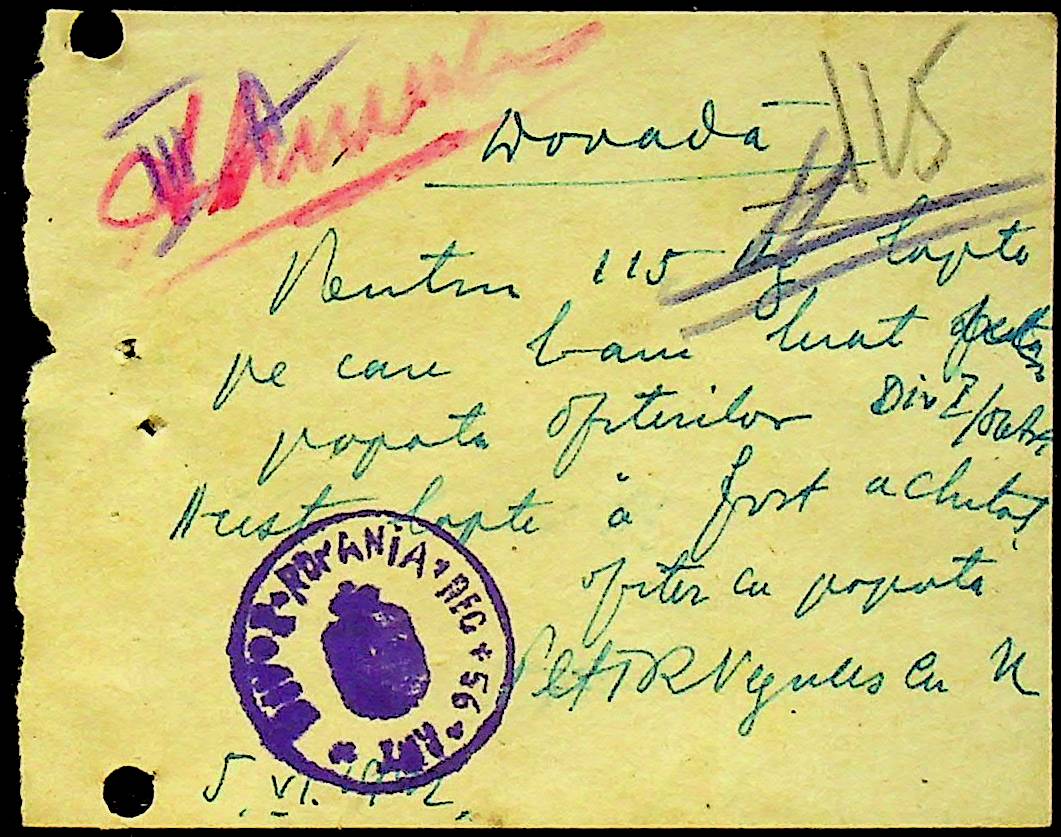 115
Dovadă
Pentru 115 kg lapte
pe care l-am luat pentru
popota ofițerilor Div I/
Acest lapte a fost achitat
ofițer cu popota
Negulescu N
ROMÂNIA * REG * 56 * ART *
5. VI. 1942.